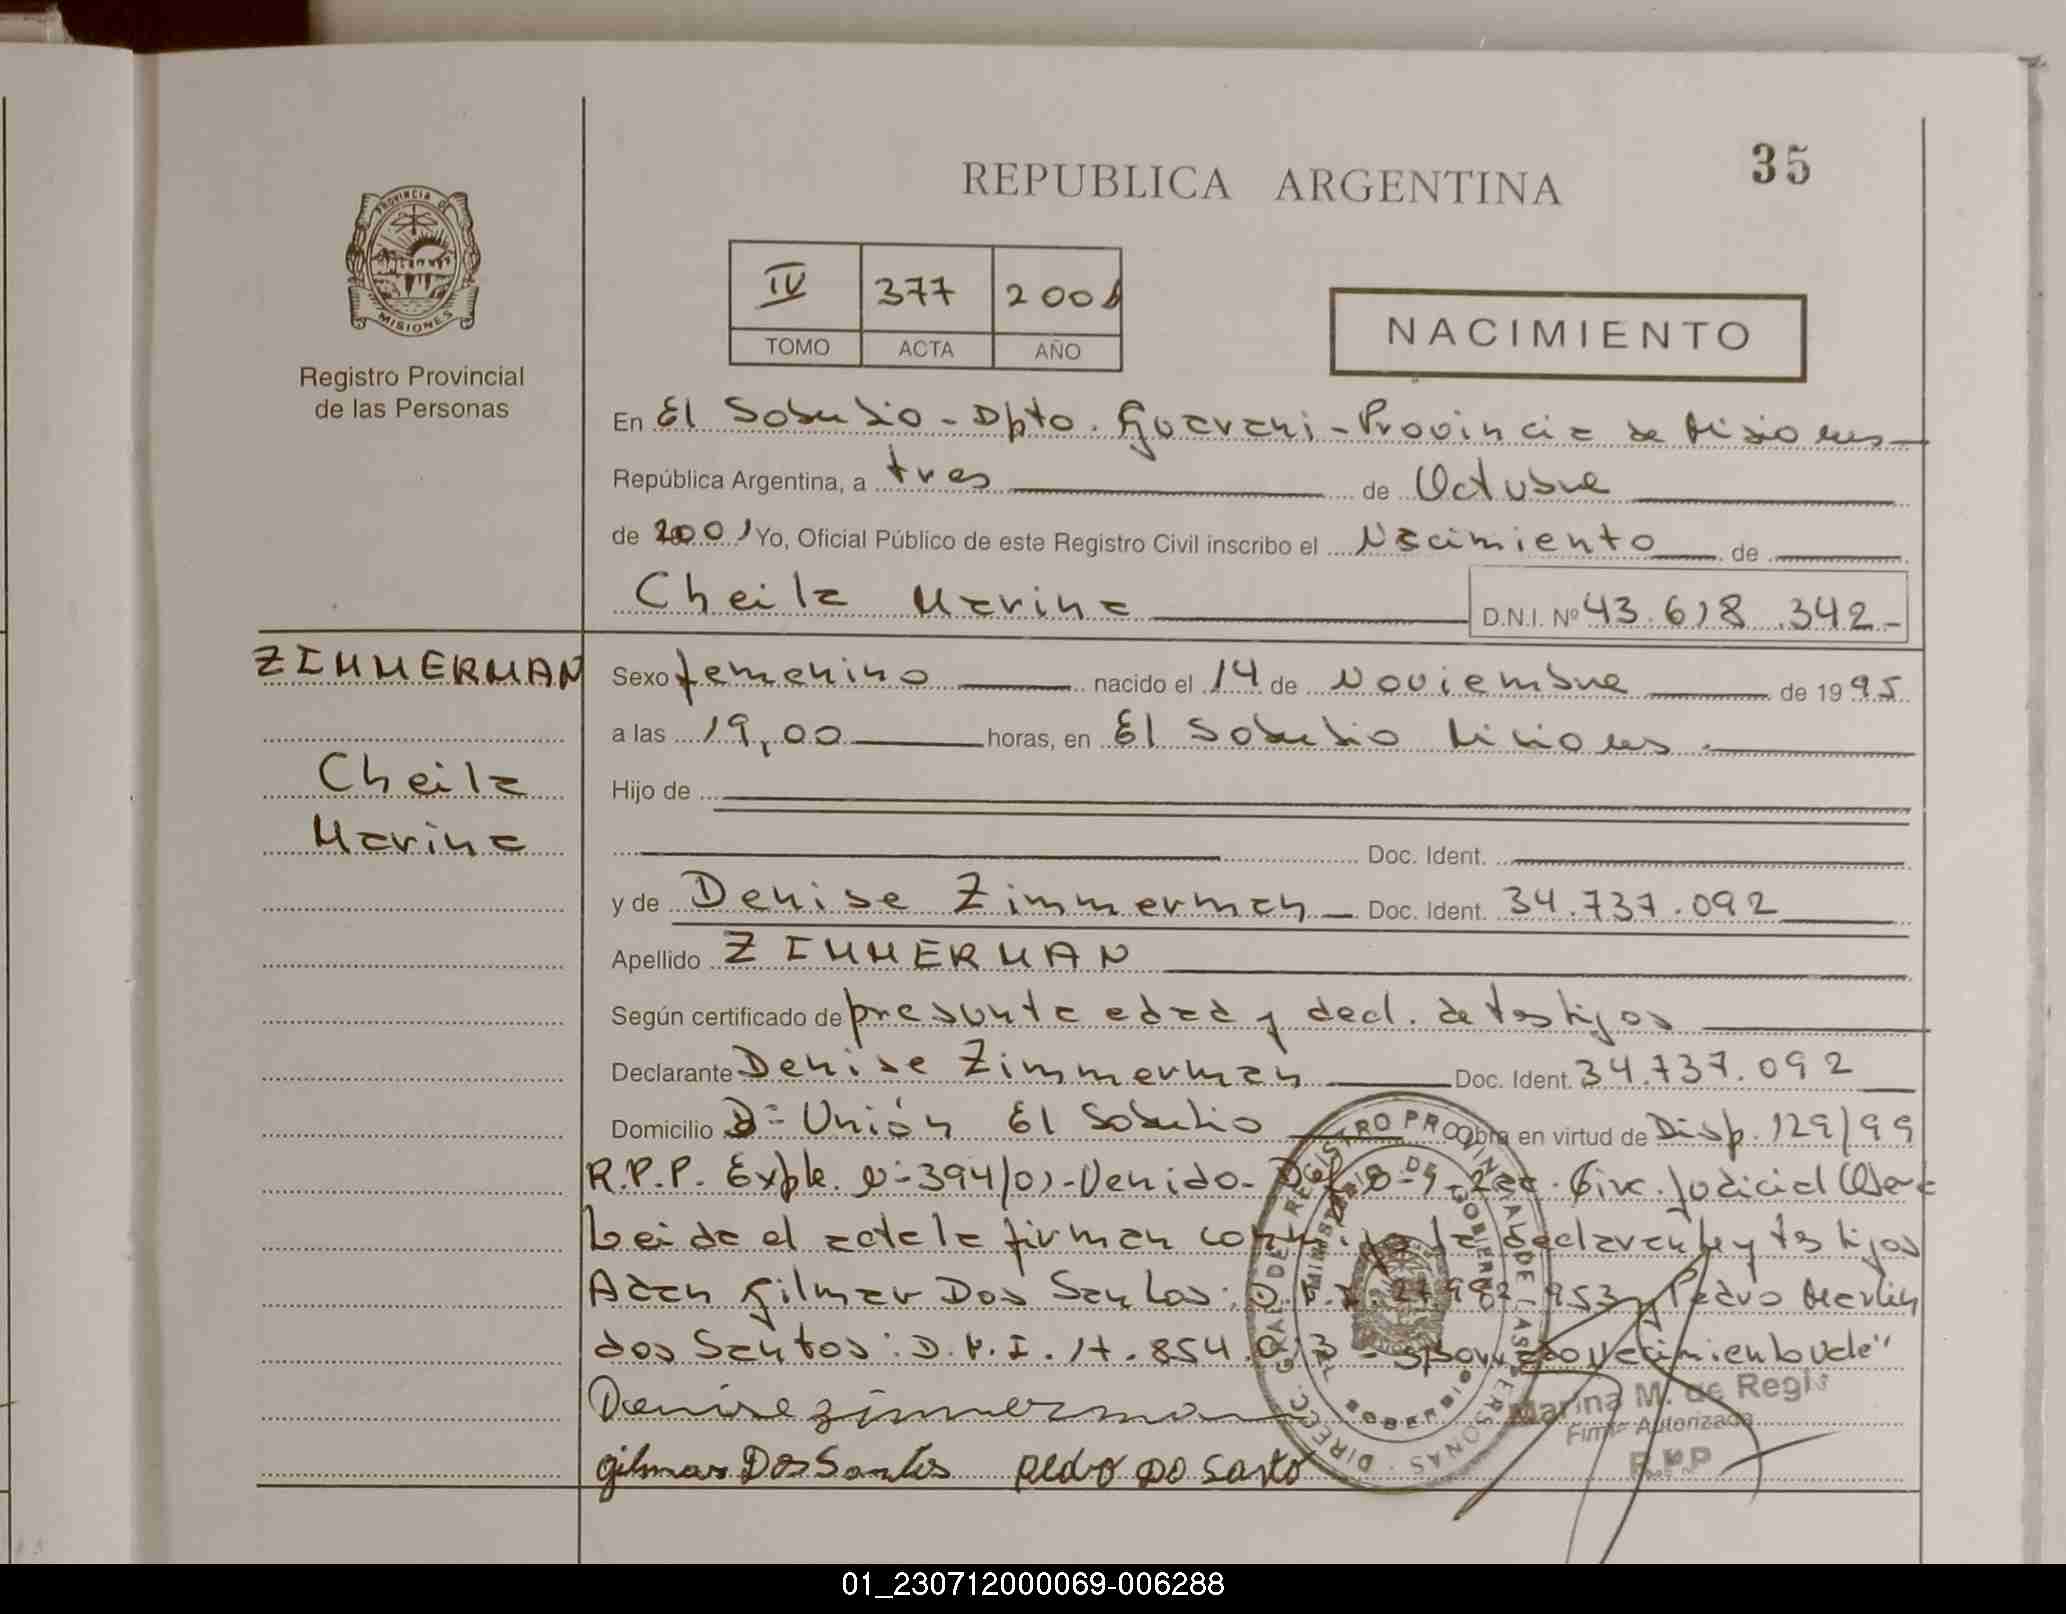 35
REPUBLICA ARGENTINA
PROVINCIA DE
MISIONES
Registro Provincial
de las Personas
IV 377 2001
TOMO ACTA AÑO
NACIMIENTO
En El Soberbio - Dpto. Guarani - Provincia de Misiones
República Argentina, a tres de Octubre
de 2001 Yo, Oficial Público de este Registro Civil inscribo el Nacimiento de
Cheila Marina D.N.I. Nº 43.618.342-
ZIMMERMAN
Cheila
Marina
Sexo femenino nacido el 14 de Noviembre de 1995
a las 19,00 horas, en El Soberbio Misiones.
Hijo de
Doc. Ident.
y de Denise Zimmerman Doc. Ident. 34.737.092
Apellido ZIMMERMAN
Según certificado de presunta edad y decl. de testigos
Declarante Denise Zimmerman Doc. Ident. 34.737.092
Domicilio Bº Unión El Soberbio Obra en virtud de Disp. 129/99
R.P.P. Expte. Nº 394/01 - Venido - Def. Of. 2da. Circ. Judicial
Leida el acta la firman conmigo la declarante y testigos
Adan Gilmar Dos Santos: y Pedro Martin
dos Santos: D.N.I. 17.854. vale"
Denise zimmerman
gilmar Dos Santos Pedro Do Santo
DIREC. GRAL DE REGISTRO PROVINCIAL DE LAS PERSONAS
MINISTERIO DE GOBIERNO
EL SOBERBIO
Marina M. de Regis
Firma Autorizada
R.P.P
01_230712000069-006288